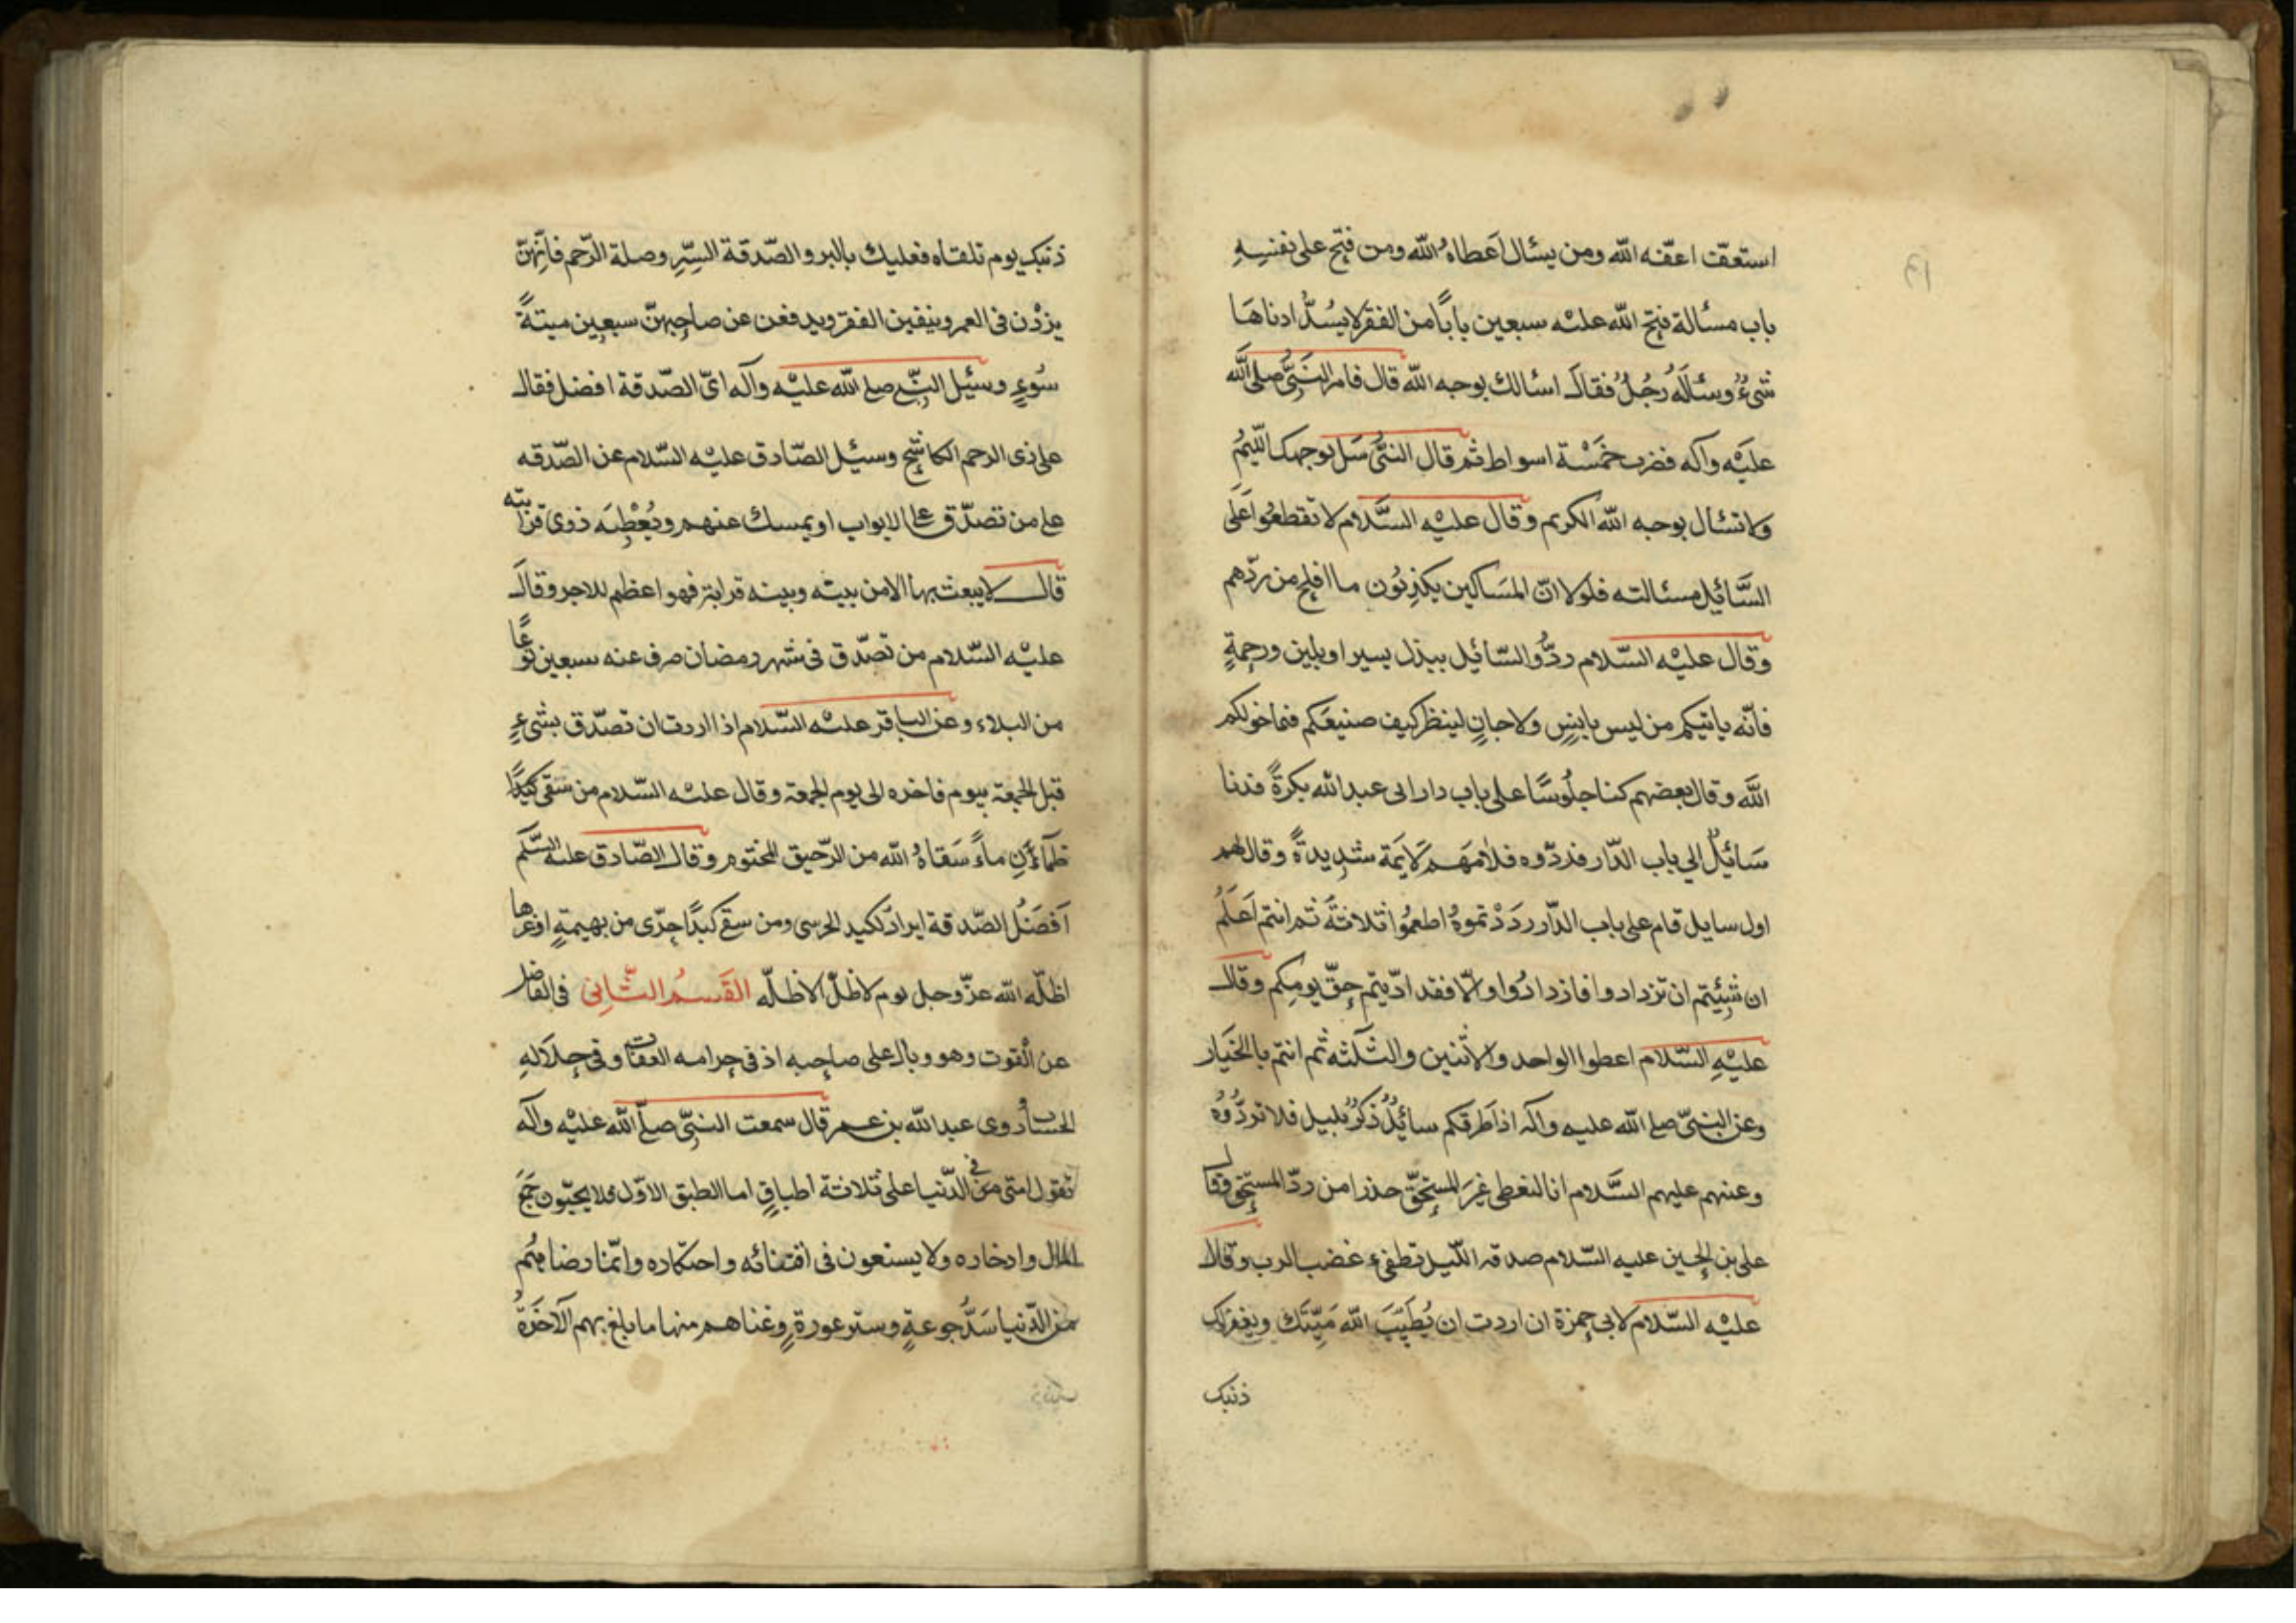 استعفّ اعفّه الله ومن يسئال اَعطاهُ الله ومن فتح على نفسِهِ
باب مسئالة فتح الله عليْه سبعين باباً من الفقر لا يسُدُّ ادناهَا
شىءٌ وسئالَهُ رُجُلٌ فقالَ اسئالك بوجه الله قال فامر النَبِىُّ صلى الله
عليْه وآله فضرب خمَسْة اسواط ثم قال النبَّى سَل بوجهك اللّيُم
ولا تسئال بوجه الله الكريم وقال عليْه السَّلام لا تقطعُوا عَلَى
السَّائِل مسئالته فلولا انّ المسَاكين يكذِبُون ما افلح من ردّهم
وقال عليْه السّلام ردُّوالسّائيل ببذل يسير او بلين ورحمةٍ
فانّه ياتيكم من ليس باِنسٍ ولا جانٍ لينظر كيف صنيعَكم فيما خولكم
اللَّه وقال بعضهم كنا جلُوسًا على باب دار ابى عبد الله بكرةً فدنا
سَائيلٌ الي باب الدّار فردّوه فلامَهَم لَايَمة شدِيدةً وقال لهم
اول سايل قام على باب الدّار ردَدْتموهُ اطعمُوا ثلاثةً ثم انتم اَعلَمُ
ان شِئيتم ان تزدادوا فازدادُوا والّا فقد ادّيتم حقّ يومِكم وقال
عليْهِ السّلام اعطوا الواحد والاثنين والثلَثه ثم انتم بالخيَار
وعن النبىّ صلع الله عليه وآله اذا طَرقكم سائيلٌ ذَكرٌ بليل فلا تردُّوُه
وعنهم عليهم السَّلام انا لنعطى غيرَ المستحقّ حذرا من ردّ المستحق وقال
على بن الحسين عليه السّلام صدقة اللّيل تطفىء غضب الرب وقال
عليْه السّلام لابى حمزة ان اردت ان يُطَيِّبَ الله مَيِّتَك ويغفر لك
ذنبك
ذنبك يوم تلقاه فعليك بالبر والصّدقة السِّرِ وصلة الرّحم فانّهنّ
يزدْن فى العمر وينفين الفقر ويدفعن عن صاحِبهنّ سبعِين ميتةً
سُوءٍ وسئيل النبّى صلع الله عليْه وآله اىّ الصّدقة افضل فقال
على ذى الرحم الكاشِح وسئيل الصّادق عليْه السّلام عن الصّدقه
على من تصدّق على الابواب او يمسك عنهم ويُعْطِيَه ذوى قرابته
قال لا يبعث بها الا من بينْه وبينه قرابة فهو اعظم للاجر وقالَ
عليْه السّلام من تصدّق فى شهر رمضان صرف عنه سبعين نوعًا
من البلاء وعن الباقر عليْه السّلام اذا اردت ان تصدّق بشىءٍ
قبل الجمعة بيوم فاخره الى يوم الجمعة وقال عليْه السّلام من سقى كبدًا
ظمآءنِ ماءً سَقاهُ الله من الرّحيق المختوم وقال الصّادق عليْه السّلم
اَفضَلُ الصّدقة ايراد لكبد الحرسى ومن سقى كبدًا حرّى من بهيمةٍ او غيرها
اظلّه الله عزّ وجل يوم لا ظلّ الا ظلّه القَسمُ الثّانِى فى الفاضل
عن القوت وهو وبال على صاحِبه اذ فى حرامه العقاب وفى حِلَالِهِ
الحساب روى عبد الله بن عمر قال سمعت النبىّ صلّع الله عليْه وآله
تقول امتى فى الدّنيا على ثلاثة اطباقٍ اما الطبق الاوّل فلا يحبّون جَمَعَ
المال وادخاره ولا يسنعون فى اقتنائه واحتكاره وانّما رضاهُم
من الدّنيا سَدُّ جوعةٍ وستر عورةٍ وغناهم منها ما بلغ بهم الآخَرةُ